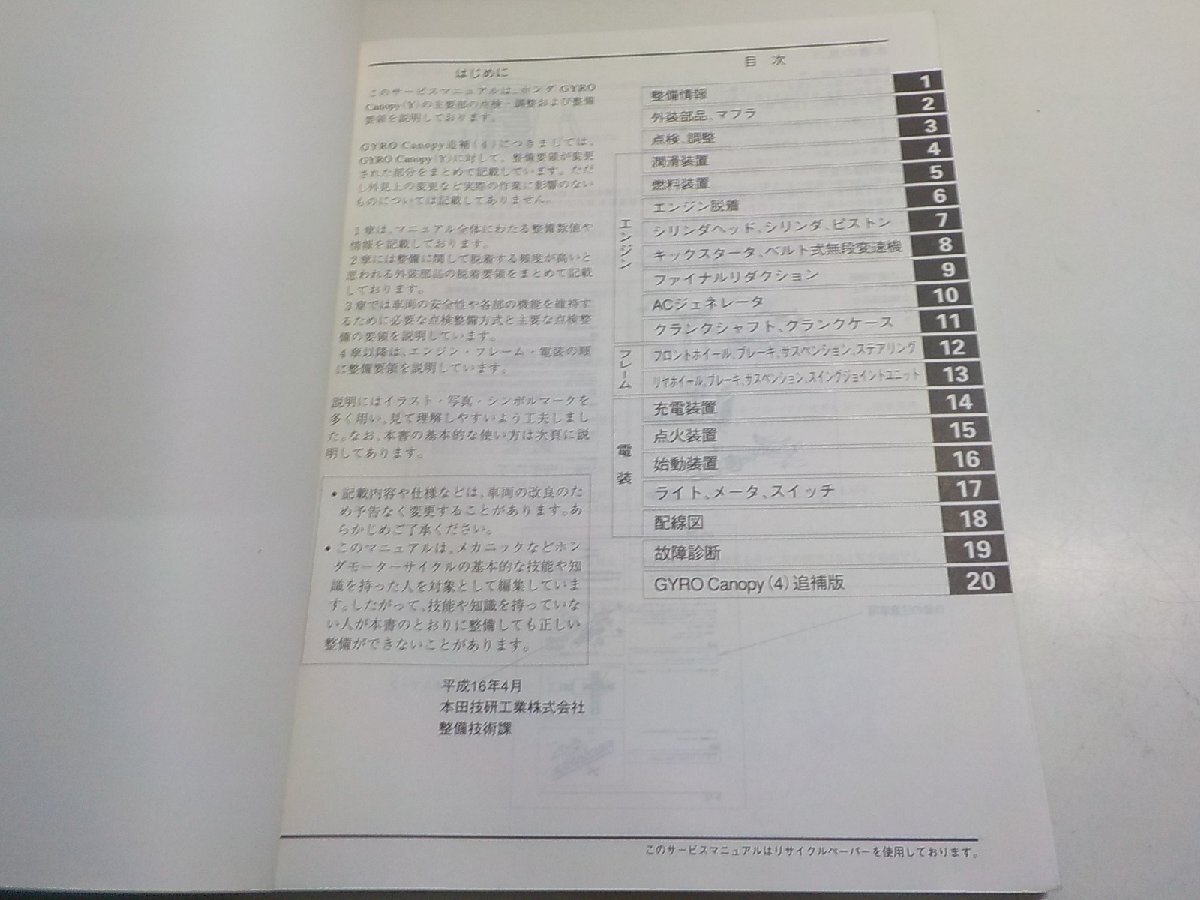 はじめに
このサービスマニュアルは、ホンダ GYRO
Canopy(Y)の主要部の点検・調整および整備
要領を説明しております。
GYRO Canopy追補(4)につきましては、
GYRO Canopy(Y)に対して、整備要領が変更
された部分をまとめて記載しています。ただ
し外見上の変更など実際の作業に影響のない
ものについては記載してありません。
1章は、マニュアル全体にわたる整備数値や
情報を記載しております。
2章には整備に関して脱着する頻度が高いと
思われる外装部品の脱着要領をまとめて記載
しております。
3章では車両の安全性や各部の機能を維持す
るために必要な点検整備方式と主要な点検整
備の要領を説明しています。
4章以降は、エンジン・フレーム・電装の順
に整備要領を説明しています。
説明にはイラスト・写真・シンボルマークを
多く用い、見て理解しやすいよう工夫しまし
た。なお、本書の基本的な使い方は次頁に説
明してあります。
• 記載内容や仕様などは、車両の改良のた
め予告なく変更することがあります。あ
らかじめご了承ください。
• このマニュアルは、メカニックなどホン
ダモーターサイクルの基本的な技能や知
識を持った人を対象として編集していま
す。したがって、技能や知識を持っていな
い人が本書のとおりに整備しても正しい
整備ができないことがあります。
平成16年4月
本田技研工業株式会社
整備技術課
目 次
整備情報 1
外装部品、マフラ 2
点検、調整 3
エンジン
潤滑装置 4
燃料装置 5
エンジン脱着 6
シリンダヘッド、シリンダ、ピストン 7
キックスタータ、ベルト式無段変速機 8
ファイナルリダクション 9
ACジェネレータ 10
クランクシャフト、クランクケース 11
フレーム
フロントホイール、ブレーキ、サスペンション、ステアリング 12
リヤホイール、ブレーキ、サスペンション、スイングジョイントユニット 13
電装
充電装置 14
点火装置 15
始動装置 16
ライト、メータ、スイッチ 17
配線図 18
故障診断 19
GYRO Canopy(4)追補版 20
このサービスマニュアルはリサイクルペーパーを使用しております。